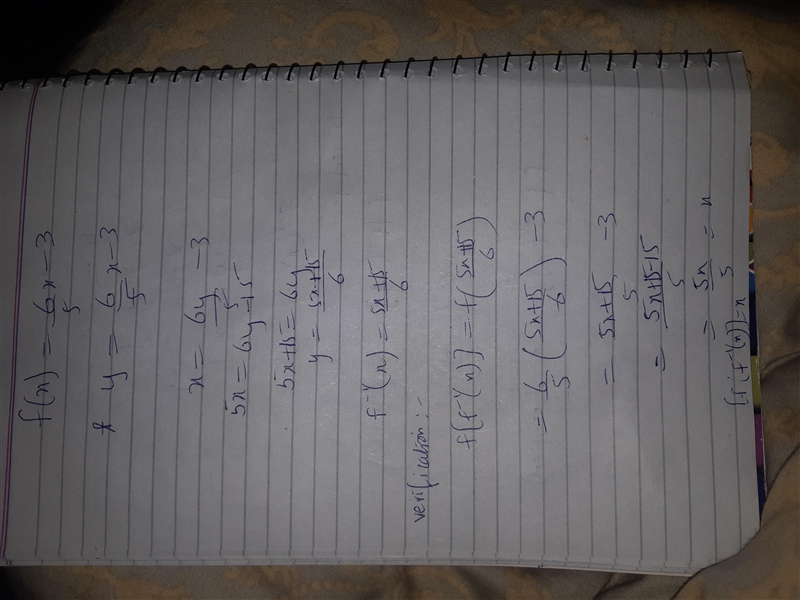 f(x) = 6x/5 - 3
* y = 6/5 x - 3
x = 6y/5 - 3
5x = 6y - 15
5x + 15 = 6y
y = 5x+15/6
f⁻¹(x) = 5x+15/6
verification :-
f[f⁻¹(x)] = f(5x+15/6)
= 6/5 (5x+15/6) - 3
= 5x+15/5 - 3
= 5x+15-15/5
= 5x/5 = x
[f(f⁻¹(x)] = x